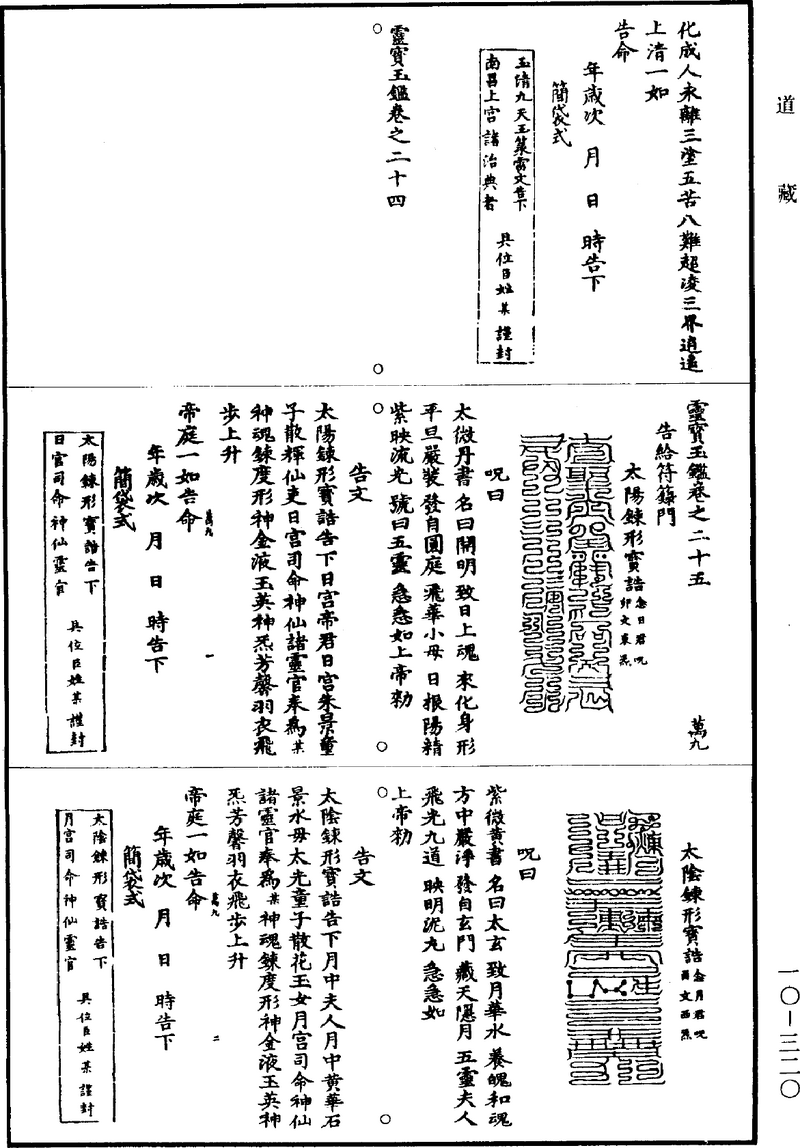 道藏
化成人永離三塗五苦八難超凌三界逍遙
上清一如
告命
年歲次　月　日　時告下
簡袋式
玉清九天玉篆靈文告下
南昌上宮諸治典者
具位臣姓某謹封
靈寶玉鑑卷之二十四
靈寶玉鑑卷之二十五　萬九
告給符籙門
太陽鍊形寶誥
念日君呪
卯文東炁
呪曰
太微丹書 名曰開明 致日上魂 來化身形
平旦嚴裝 發自圓庭 飛華小母 日根陽精
紫映流光 號曰五靈 急急如上帝勑
告文
太陽鍊形寶誥告下日宮帝君日宮朱景童
子散輝仙吏日宮司命神仙諸靈官奉爲某
神魂鍊度形神金液玉英神炁芳馨羽衣飛
步上升
帝庭一如告命
萬九　一
年歲次　月　日　時告下
簡袋式
太陽鍊形寶誥告下
日宮司命神仙靈官
具位臣姓某謹封
太陰鍊形寶誥
念月君呪
酉文西炁
呪曰
紫微黃書 名曰太玄 致月華水 養魄和魂
方中嚴淨 發自玄門 藏天隱月 五靈夫人
飛光九道 映明泥丸 急急如
上帝勑
告文
太陰鍊形寶誥告下月中夫人月中黃華石
景水母太光童子散花玉女月宮司命神仙
諸靈官奉爲某神魂鍊度形神金液玉英神
炁芳馨羽衣飛步上升
帝庭一如告命
萬九　二
年歲次　月　日　時告下
簡袋式
太陰鍊形寶誥告下
月宮司命神仙靈官
具位臣姓某謹封
一〇—三二〇